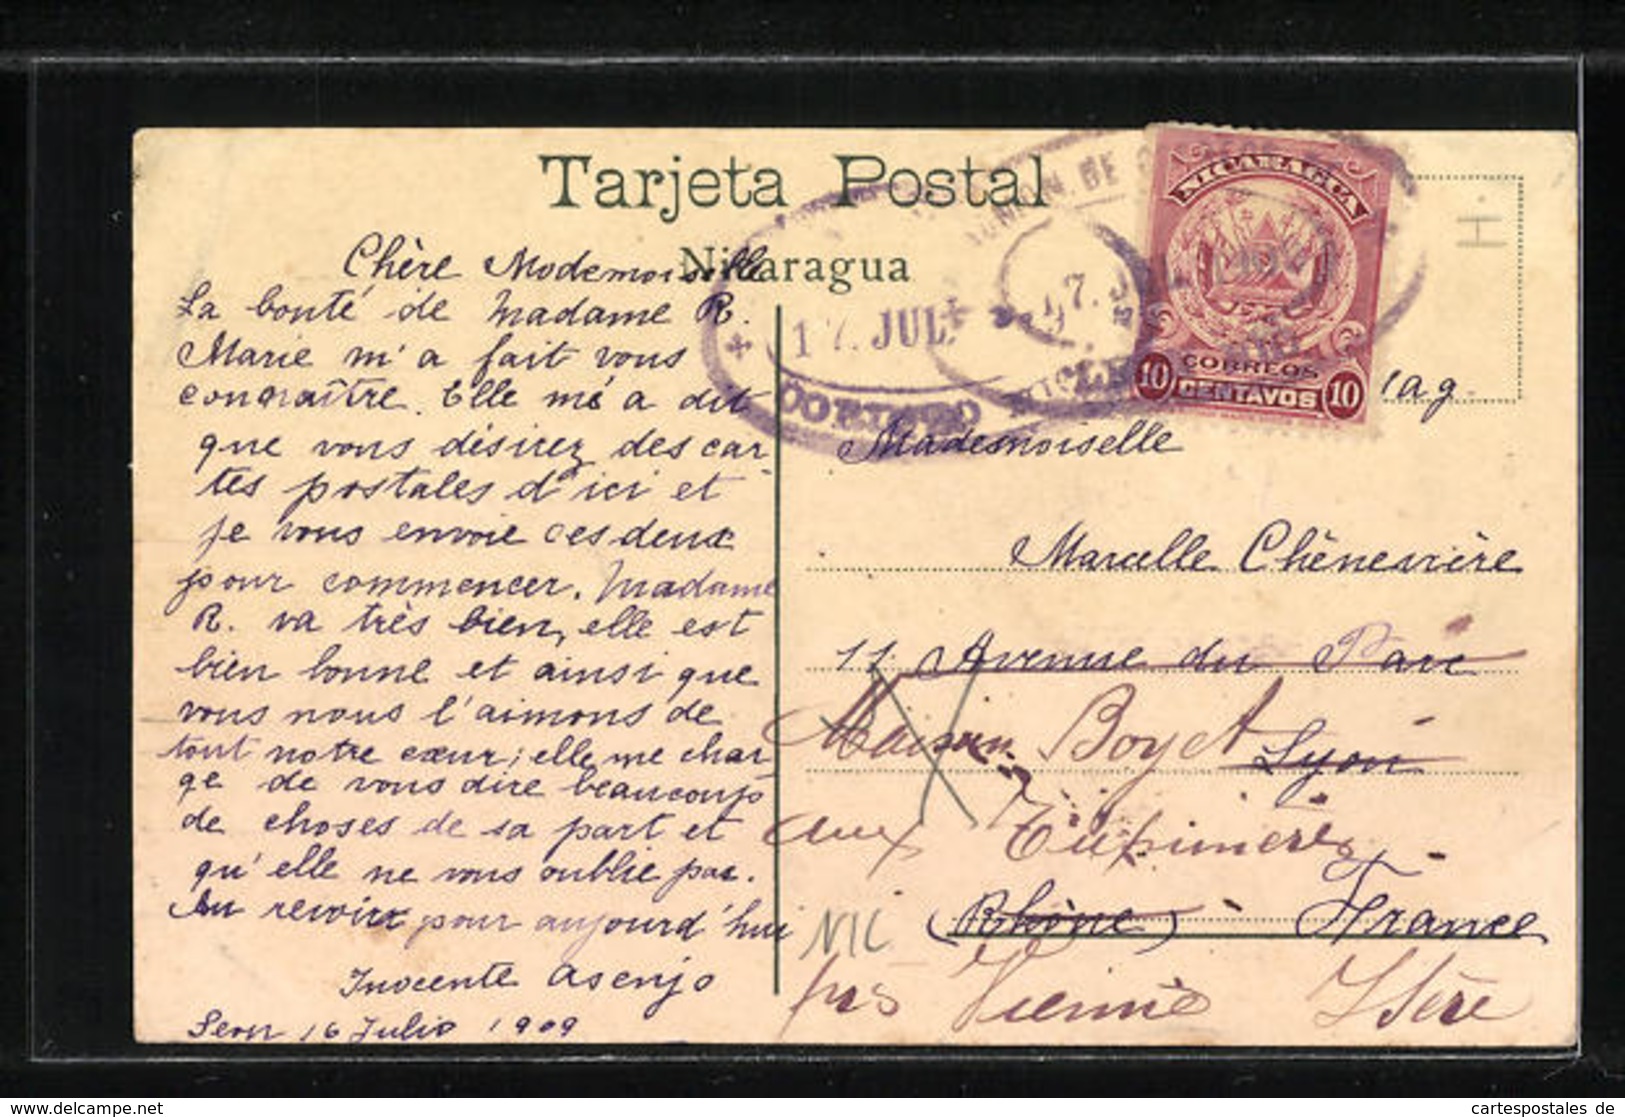 Tarjeta Postal
Nicaragua
Chère Modemoiselle
La bonté de Madame R.
Marie m'a fait vous
connaître. Elle m'a dit
que vous désirez des car
tes postales d'ici et
je vous envoie ces deux
pour commencer. Madame
R. va très bien, elle est
bien bonne et ainsi que
vous nous l'aimons de
tout notre cœur; elle me char
ge de vous dire beaucoup
de choses de sa part et
qu'elle ne vous oublie pas.
Au revoir pour aujourd'hui
Inocente Asenjo
Leon 16 Julio 1909
17. JUL.
CORINTO
DE
17. JUL
NICARAGUA
CORREOS
10 CENTAVOS 10
H.
Mademoiselle
Marcelle Chènevière
11 Avenue du Parc
Maison Boyet Lyon
aux
(Rhône) France
NIC
près Vienne Isère
cartespostales de